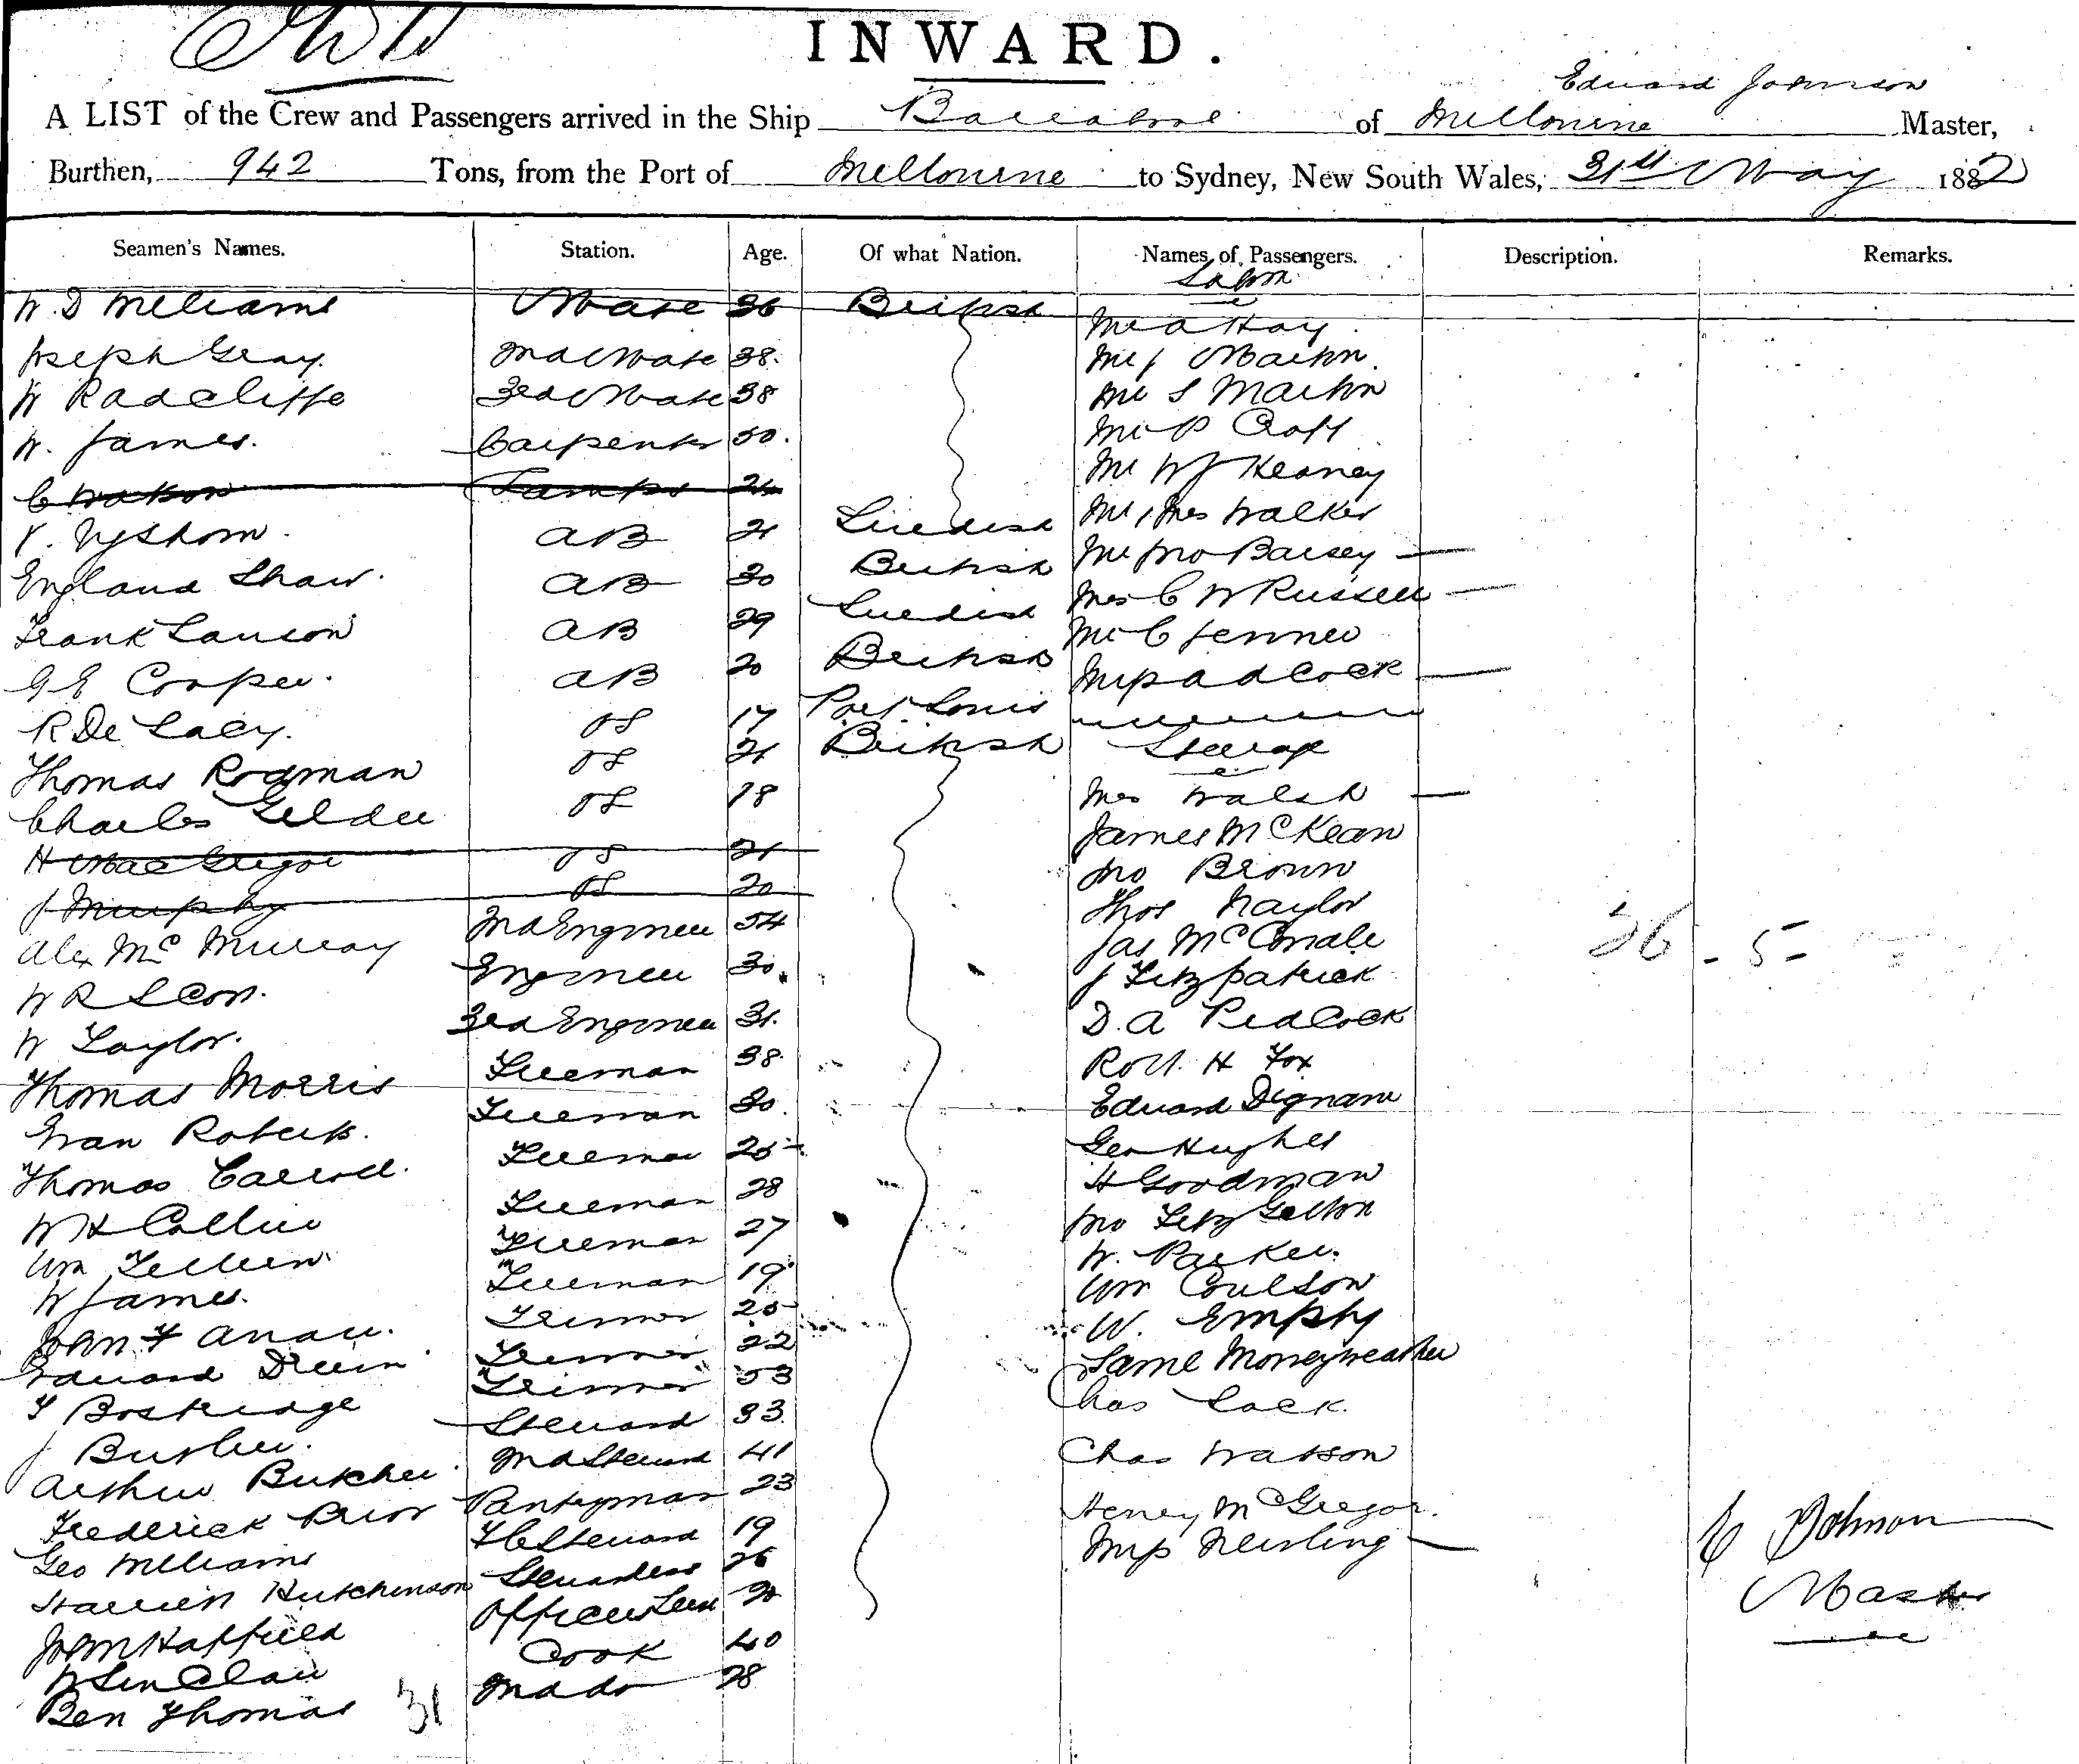 INWARD.
Edward Johnson
A LIST of the Crew and Passengers arrived in the Ship Barrabool of Melbourne Master,
Burthen, 942 Tons, from the Port of Melbourne to Sydney, New South Wales, 31st May 1882
Seamen's Names. Station. Age. Of what Nation. Names of Passengers. Description. Remarks.
Saloon
W D Williams Mate 36 British Mr A Hay
Joseph Gray. 2nd Mate 38. Mr J Martin
W Radcliffe 3rd Mate 38 Mr S Martin
W. James. Carpenter 50. Mr P Croft
Mr W J Keaney
C Watson Lamps 24
Mr & Mrs Walker
AB 21 Swedish
Mr Jno Barsey
England Shaw. AB 30 British
Mrs C W Russell
Frank Lawson AB 29 Swedish
Mr C Jenner
G E Cooper. AB 20 British
Adcock
R De Lacy. OS 17 Port Louis
Thomas Rodman OS 21 British Steerage
Charles Gelder OS 18 Mrs Walsh
James McKean
H MacGregor OS 21
Jno Brown
J Murphy OS 20
Thos Naylor
Alex McMurray 2nd Engineer 54
Jas McConale
W R Scon. Engineer 30. J Fitzpatrick
W Taylor. 3rd Engineer 31. D. A Peacock
Thomas Morris Fireman 38 Robt. H Fox
Evan Roberts. Fireman 30. Edward Dignam
Thomas Carroll. Fireman 25 Geo Hughes
W H Collier Fireman 28 H Goodman
Wm Fireman 27 Jno Fitz
W James. Fireman 19 W. Parker.
John F Trimmer 25 Wm Coulson
Edward Trimmer 22 W. Empty
T Bostridge Trimmer 53 Saml Moneyweather
J Butler. Steward 33 Chas Lack.
Arthur Butcher 2nd Steward 41 Chas Watson
Frederick Prior Pantryman 23
Henry McGregor.
Geo Williams F C Steward 19
Harriett Hutchinson Stewardess 26
John Hatfield Officers Serv
W Sinclair Cook 40
Ben Thomas 2nd do 28
31
36 - 5 -
E Johnson
Master